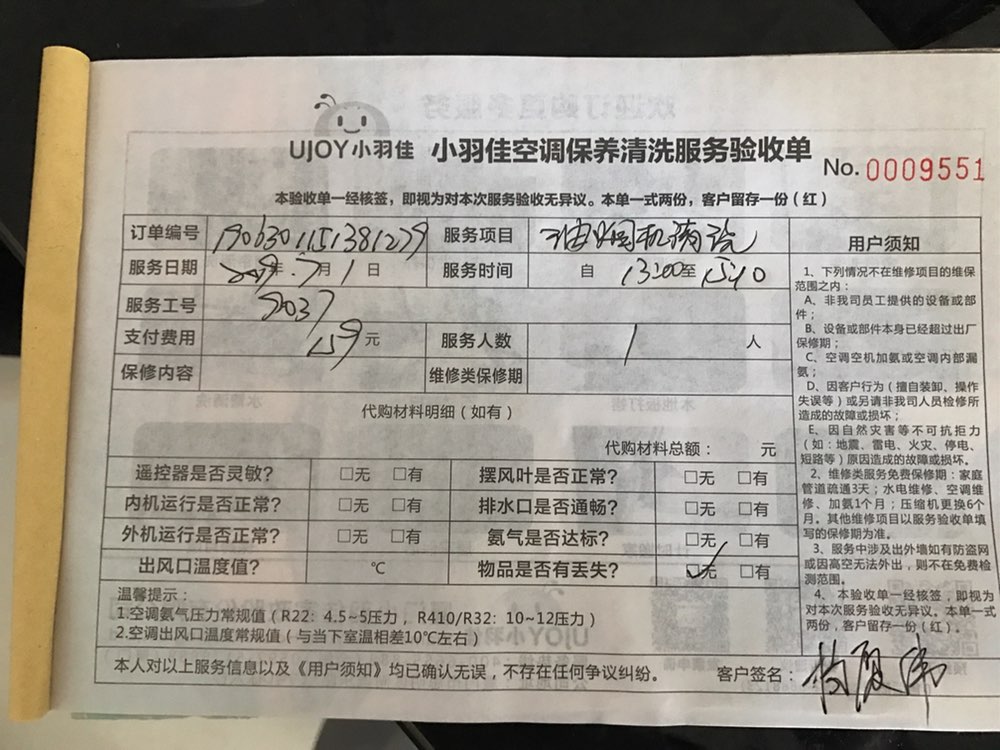 UJOY小羽佳 小羽佳空调保养清洗服务验收单
No. 0009551
本验收单一经核签，即视为对本次服务验收无异议。本单一式两份，客户留存一份（红）
订单编号 1906301151381279 服务项目 油烟机清洗
服务日期 2019年 7月 1日 服务时间 自 13:00至 15:40
服务工号 5037
支付费用 159 元 服务人数 1 人
保修内容 维修类保修期
代购材料明细（如有）
代购材料总额： 元
遥控器是否灵敏？ □无 □有 摆风叶是否正常？ □无 □有
内机运行是否正常？ □无 □有 排水口是否通畅？ □无 □有
外机运行是否正常？ □无 □有 氨气是否达标？ □无 □有
出风口温度值？ ℃ 物品是否有丢失？ ☑无 □有
温馨提示：
1.空调氨气压力常规值（R22：4.5~5压力， R410/R32：10~12压力）
2.空调出风口温度常规值（与当下室温相差10℃左右）
本人对以上服务信息以及《用户须知》均已确认无误，不存在任何争议纠纷。 客户签名：
用户须知
1、下列情况不在维修项目的维保
范围之内：
A、非我司员工提供的设备或部
件；
B、设备或部件本身已经超过出厂
保修期；
C、空调空机加氨或空调内部漏
氨；
D、因客户行为（擅自装卸、操作
失误等）或另请非我司人员检修所
造成的故障或损坏；
E、因自然灾害等不可抗拒力
（如：地震、雷电、火灾、停电、
短路等）原因造成的故障或损坏。
2、维修类服务免费保修期：家庭
管道疏通3天；水电维修、空调维
修、加氨1个月；压缩机更换6个
月。其他维修项目以服务验收单填
写的保修期为准。
3、服务中涉及出外墙如有防盗网
或因高空无法外出，则不在免费检
测范围。
4、本验收单一经核签，即视为
对本次服务验收无异议。本单一式
两份，客户留存一份（红）。